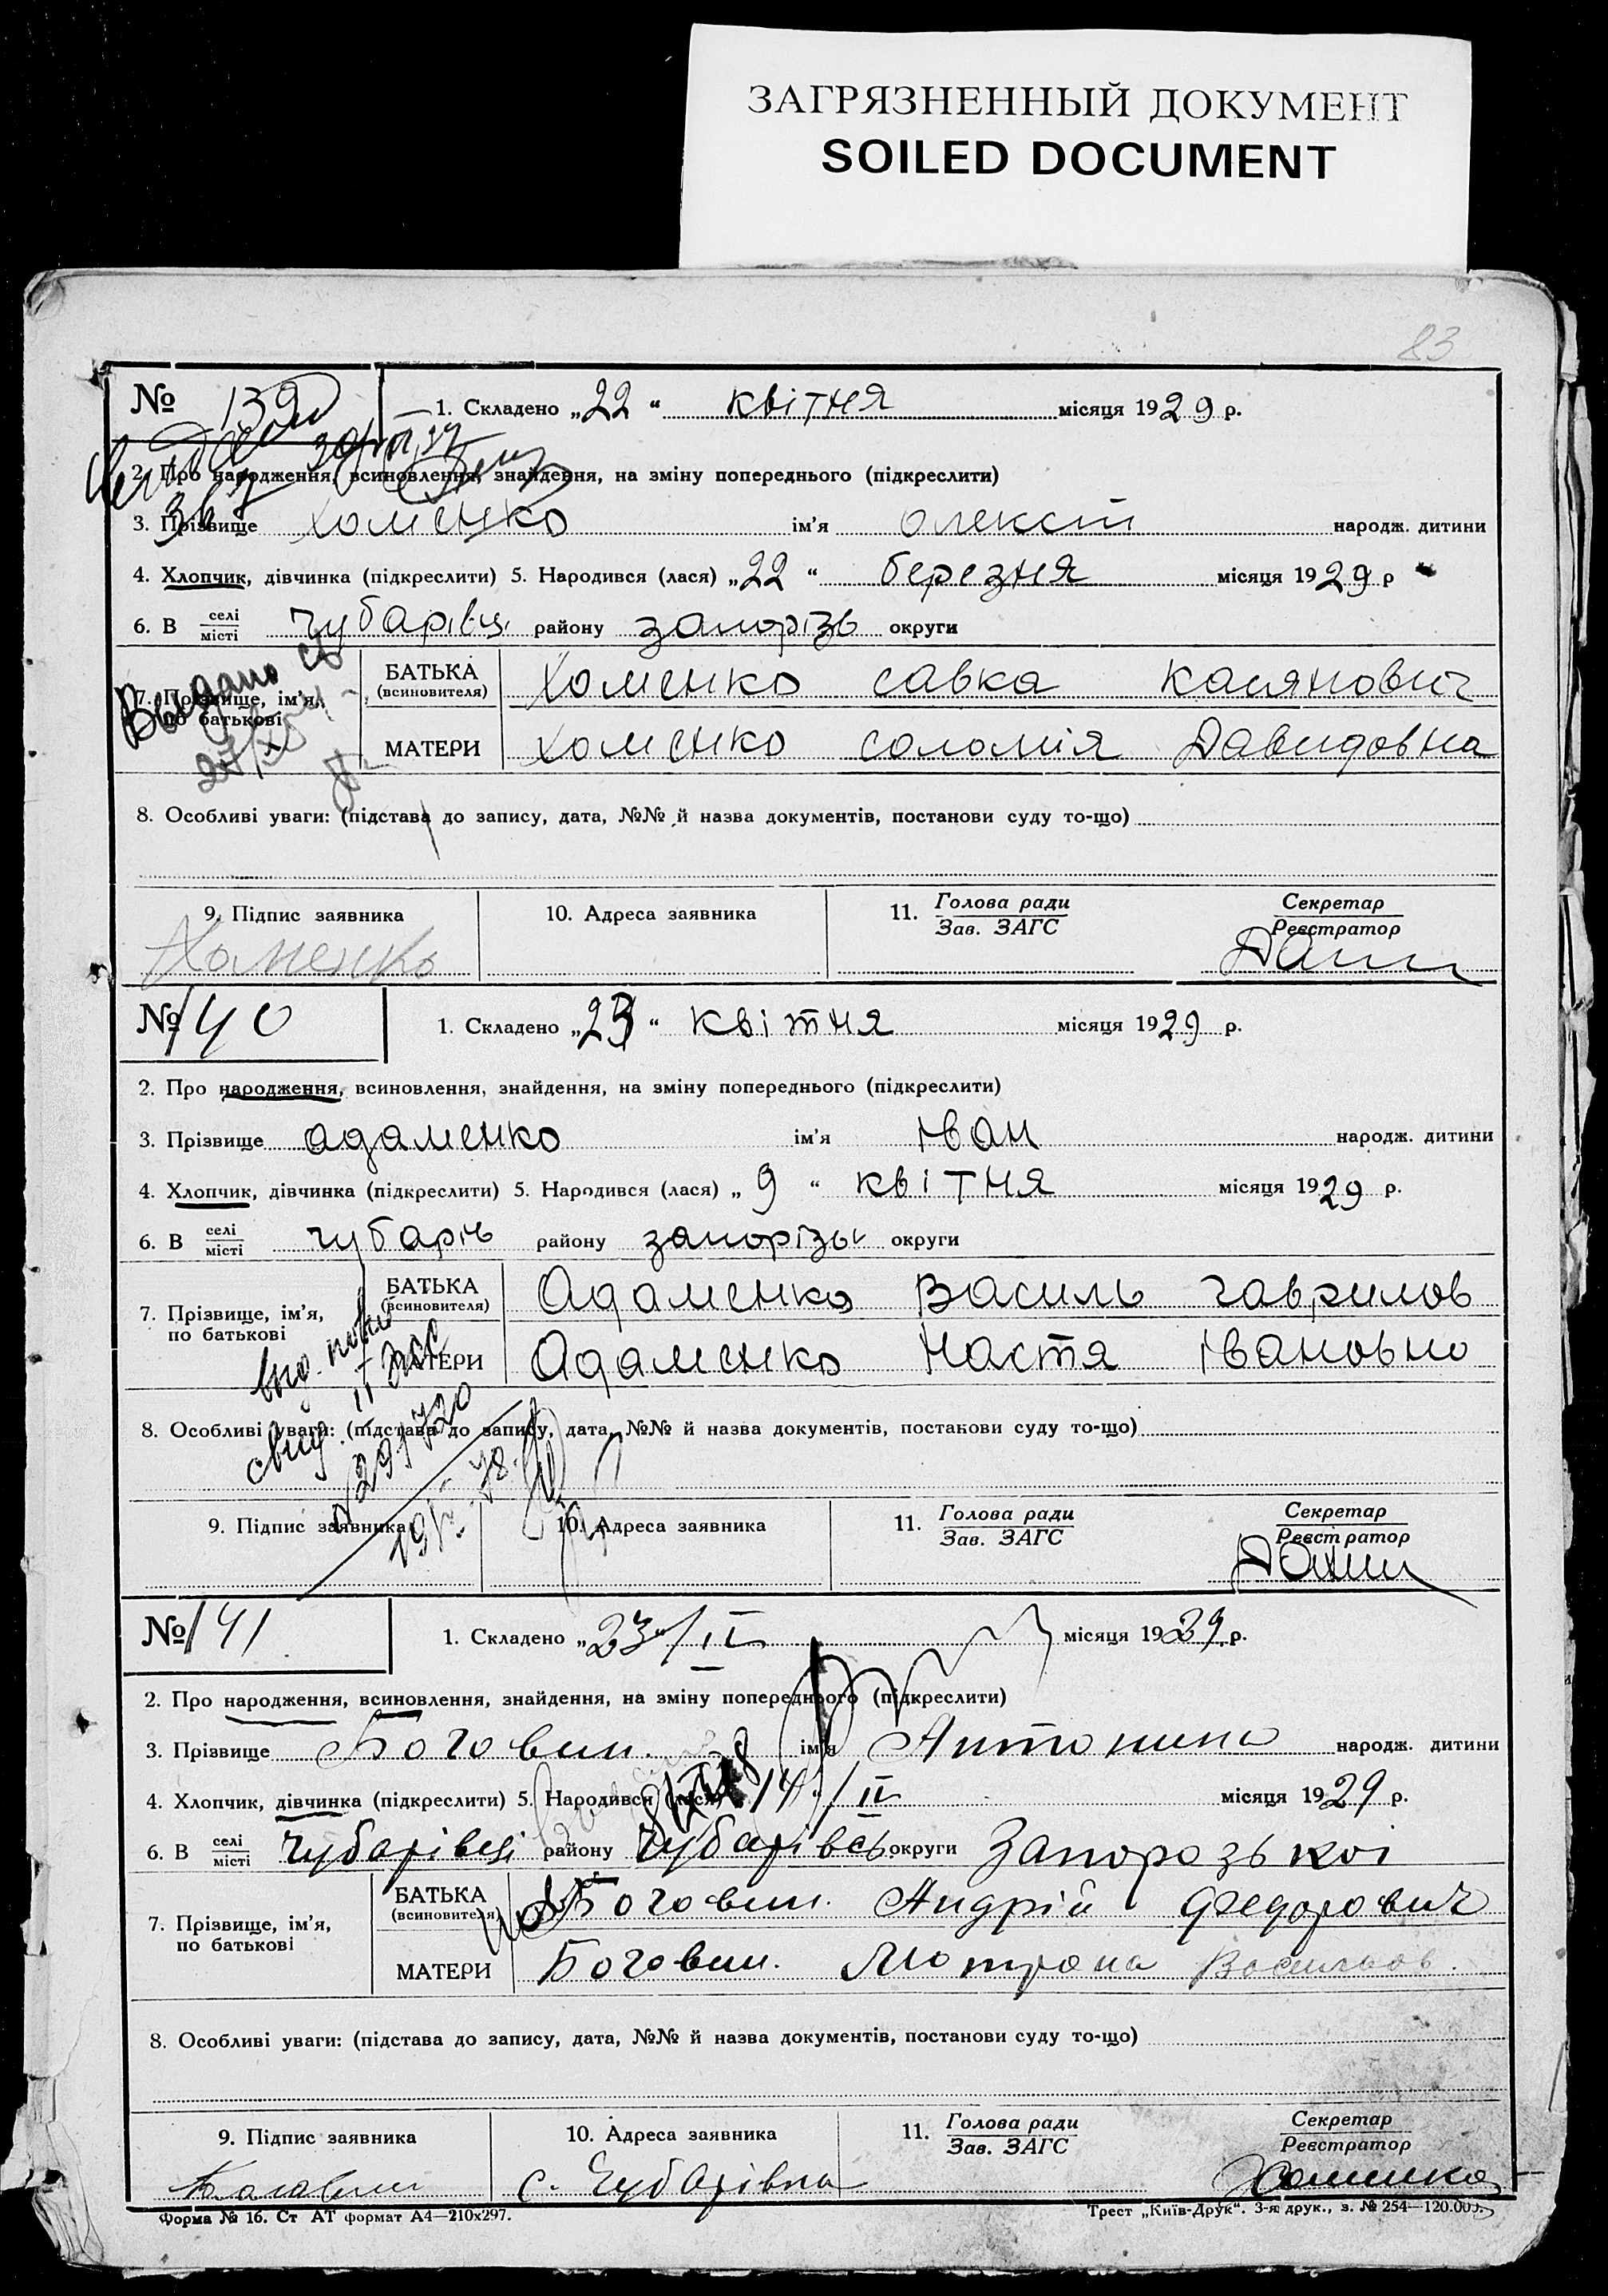 ЗАГРЯЗНЕННЫЙ ДОКУМЕНТ
SOILED DOCUMENT
83
№ 139
1. Складено „22“ квітня місяця 1929 р.
2. Про народження, всиновлення, знайдення, на зміну попереднього (підкреслити)
3. Прізвище Хоменко ім'я Олексій народж. дитини
4. Хлопчик, дівчинка (підкреслити) 5. Народився (лася) „22“ березня місяця 1929 р
6. В селі місті Чубарівці району запорізь округи
Выдано
7. Прізвище, ім'я, по батькові
БАТЬКА (всиновителя) Хоменко савка касянович
МАТЕРИ Хоменко соломія Давидовна
8. Особливі уваги: (підстава до запису, дата, №№ й назва документів, постанови суду то-що)
9. Підпис заявника 10. Адреса заявника 11. Голова ради Зав. ЗАГС Секретар Реєстратор
Хоменко
№ 140
1. Складено „23“ квітня місяця 1929 р.
2. Про народження, всиновлення, знайдення, на зміну попереднього (підкреслити)
3. Прізвище адаменко ім'я Іван народж. дитини
4. Хлопчик, дівчинка (підкреслити) 5. Народився (лася) „9“ квітня місяця 1929 р.
6. В селі місті чубарів району запорізьк округи
7. Прізвище, ім'я, по батькові
БАТЬКА (всиновителя) Адаменко Василь гаврилов
МАТЕРИ Адаменко Настя Івановно
8. Особливі уваги: (підстава до запису, дата, №№ й назва документів, постанови суду то-що)
9. Підпис заявника 10. Адреса заявника 11. Голова ради Зав. ЗАГС Секретар Реєстратор
№ 141
1. Складено „23“/IV місяця 1929 р.
2. Про народження, всиновлення, знайдення, на зміну попереднього (підкреслити)
3. Прізвище Боговин. ім'я Антонина народж. дитини
4. Хлопчик, дівчинка (підкреслити) 5. Народився (лася) 14/IV місяця 1929 р.
6. В селі місті Чубарівці району Чубарівсь округи Запорозькоі
7. Прізвище, ім'я, по батькові
БАТЬКА (всиновителя) Боговин. Андрій Федорович
МАТЕРИ Боговин. Мотрона Васильов.
8. Особливі уваги: (підстава до запису, дата, №№ й назва документів, постанови суду то-що)
9. Підпис заявника 10. Адреса заявника 11. Голова ради Зав. ЗАГС Секретар Реєстратор
Боговин с. Чубарівка
Форма № 16. Ст АТ формат А4—210х297.
Трест „Київ-Друк“. 3-я друк., з. № 254—120.000.